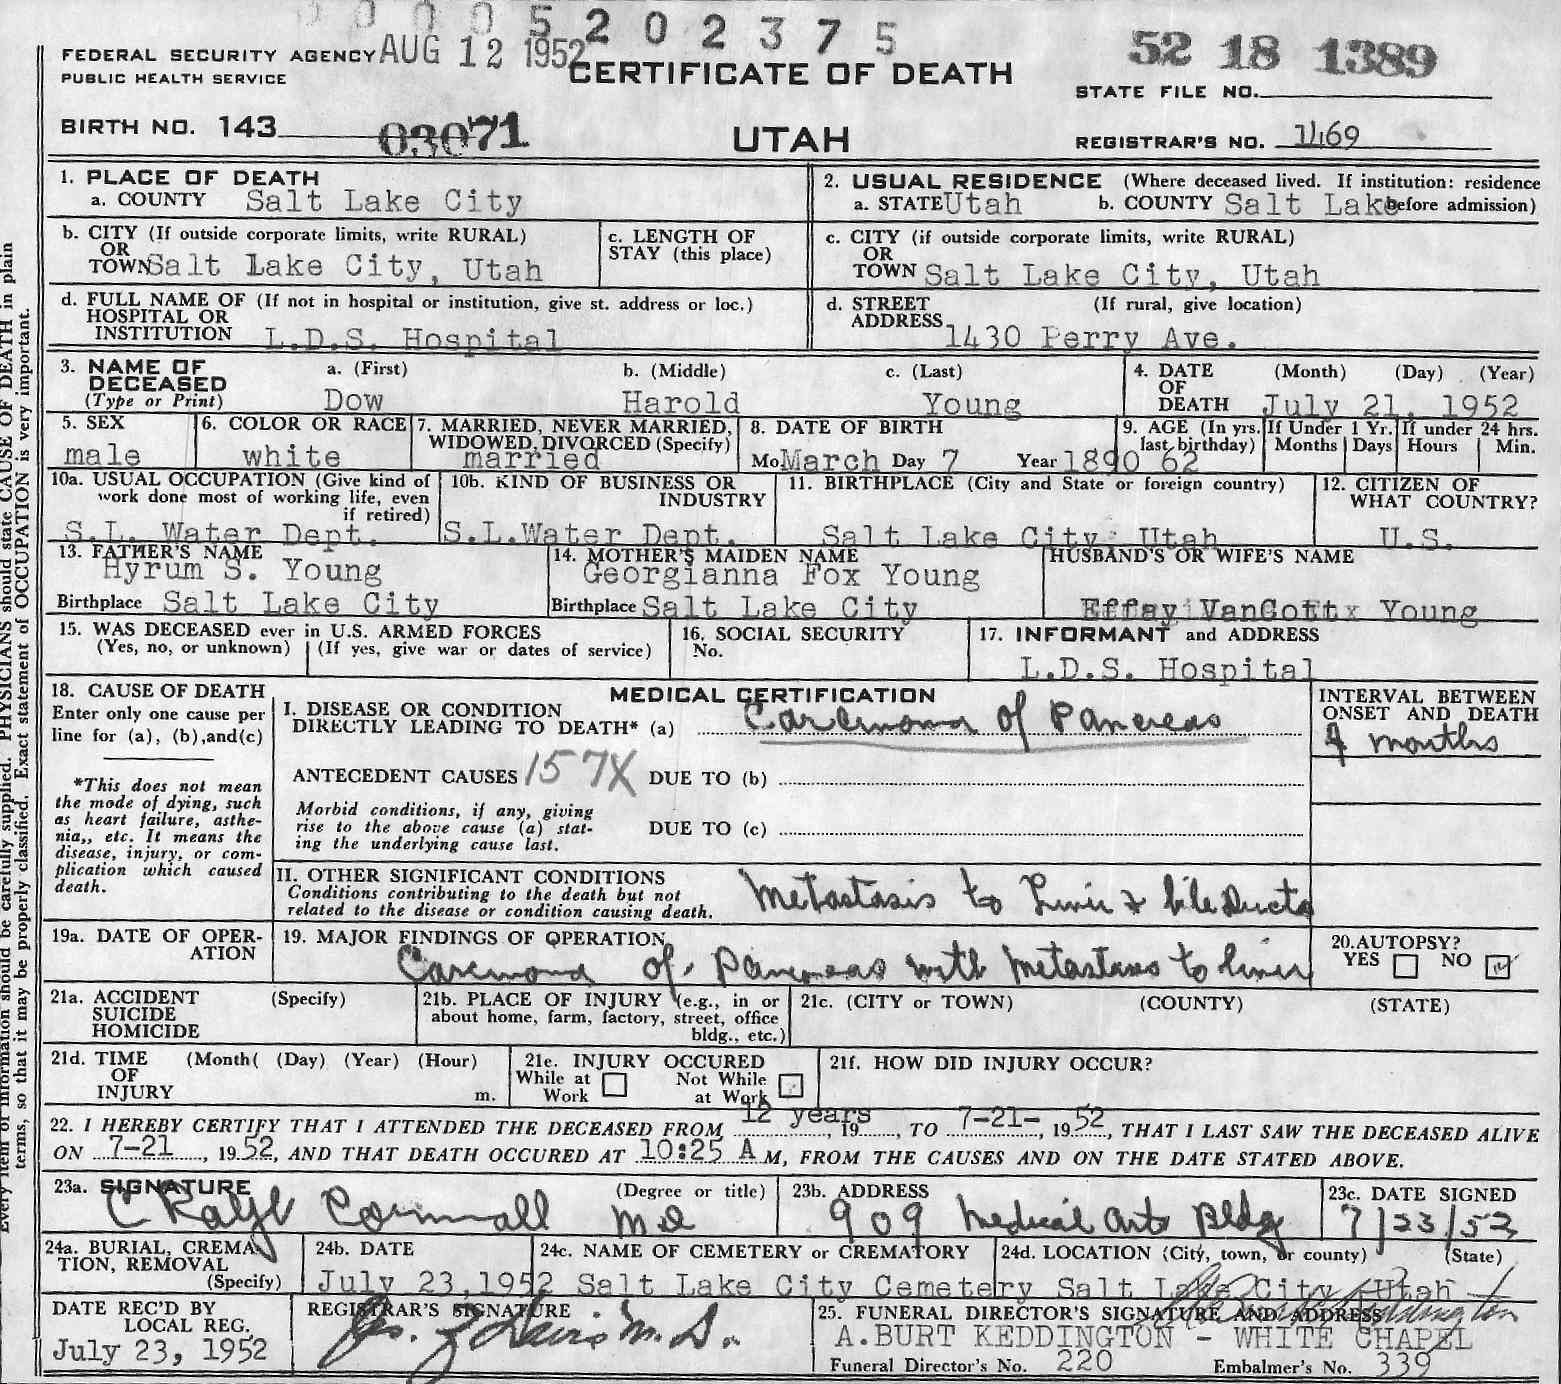 0 0 0 5 2 0 2 3 7 5
FEDERAL SECURITY AGENCY AUG 12 1952 CERTIFICATE OF DEATH 52 18 1389
PUBLIC HEALTH SERVICE STATE FILE NO.
BIRTH NO. 143 03071 UTAH REGISTRAR'S NO. 1469
1. PLACE OF DEATH 2. USUAL RESIDENCE (Where deceased lived. If institution: residence
a. COUNTY Salt Lake City a. STATE Utah b. COUNTY Salt Lake before admission)
b. CITY (If outside corporate limits, write RURAL) c. LENGTH OF c. CITY (if outside corporate limits, write RURAL)
OR STAY (this place) OR
TOWN Salt Lake City, Utah TOWN Salt Lake City, Utah
d. FULL NAME OF (If not in hospital or institution, give st. address or loc.) d. STREET (If rural, give location)
HOSPITAL OR ADDRESS
INSTITUTION L.D.S. Hospital 1430 Perry Ave.
3. NAME OF a. (First) b. (Middle) c. (Last) 4. DATE (Month) (Day) (Year)
DECEASED OF
(Type or Print) Dow Harold Young DEATH July 21, 1952
5. SEX 6. COLOR OR RACE 7. MARRIED, NEVER MARRIED, 8. DATE OF BIRTH 9. AGE (In yrs. If Under 1 Yr. If under 24 hrs.
WIDOWED, DIVORCED (Specify) last birthday) Months Days Hours Min.
male white married Mo March Day 7 Year 1890 62
10a. USUAL OCCUPATION (Give kind of 10b. KIND OF BUSINESS OR 11. BIRTHPLACE (City and State or foreign country) 12. CITIZEN OF
work done most of working life, even INDUSTRY WHAT COUNTRY?
if retired)
S.L. Water Dept. S.L.Water Dept. Salt Lake City, Utah U.S.
13. FATHER'S NAME 14. MOTHER'S MAIDEN NAME HUSBAND'S OR WIFE'S NAME
Hyrum S. Young Georgianna Fox Young
Birthplace Salt Lake City Birthplace Salt Lake City Effay VanCott Young
15. WAS DECEASED ever in U.S. ARMED FORCES 16. SOCIAL SECURITY 17. INFORMANT and ADDRESS
(Yes, no, or unknown) (If yes, give war or dates of service) No.
L.D.S. Hospital
18. CAUSE OF DEATH MEDICAL CERTIFICATION INTERVAL BETWEEN
Enter only one cause per I. DISEASE OR CONDITION ONSET AND DEATH
line for (a), (b),and(c) DIRECTLY LEADING TO DEATH* (a) Carcinoma of Pancreas 4 months
*This does not mean ANTECEDENT CAUSES 157X DUE TO (b)
the mode of dying, such Morbid conditions, if any, giving
as heart failure, asthe- rise to the above cause (a) stat- DUE TO (c)
nia,, etc. It means the ing the underlying cause last.
disease, injury, or com-
plication which caused II. OTHER SIGNIFICANT CONDITIONS
death. Conditions contributing to the death but not Metastasis to Liver & bile Ducts
related to the disease or condition causing death.
19a. DATE OF OPER- 19. MAJOR FINDINGS OF OPERATION 20.AUTOPSY?
ATION Carcinoma of Pancreas with Metastasis to liver YES NO
21a. ACCIDENT (Specify) 21b. PLACE OF INJURY (e.g., in or 21c. (CITY or TOWN) (COUNTY) (STATE)
SUICIDE about home, farm, factory, street, office
HOMICIDE bldg., etc.)
21d. TIME (Month( (Day) (Year) (Hour) 21e. INJURY OCCURED 21f. HOW DID INJURY OCCUR?
OF While at Not While
INJURY m. Work at Work
22. I HEREBY CERTIFY THAT I ATTENDED THE DECEASED FROM 12 years, 19, TO 7-21-, 1952, THAT I LAST SAW THE DECEASED ALIVE
ON 7-21, 1952, AND THAT DEATH OCCURED AT 10:25 A M, FROM THE CAUSES AND ON THE DATE STATED ABOVE.
23a. SIGNATURE (Degree or title) 23b. ADDRESS 23c. DATE SIGNED
C Cornwall MD 909 Medical Arts Bldg 7/23/52
24a. BURIAL, CREMA- 24b. DATE 24c. NAME OF CEMETERY or CREMATORY 24d. LOCATION (City, town, or county) (State)
TION, REMOVAL
(Specify) July 23, 1952 Salt Lake City Cemetery Salt Lake City, Utah
DATE REC'D BY REGISTRAR'S SIGNATURE 25. FUNERAL DIRECTOR'S SIGNATURE AND ADDRESS
LOCAL REG. Davis M.D. A.BURT KEDDINGTON - WHITE CHAPEL
July 23, 1952 Funeral Director's No. 220 Embalmer's No. 339
Every item of information should be carefully supplied. PHYSICIANS should state CAUSE OF DEATH in plain
terms, so that it may be properly classified. Exact statement of OCCUPATION is very important.